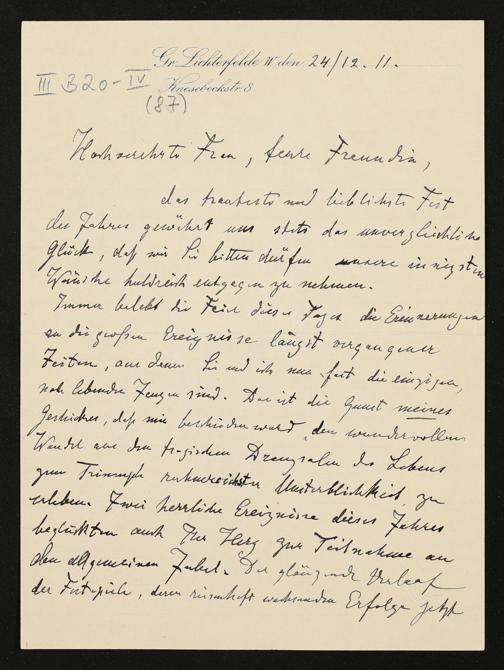 Gr. Lichterfelde W. den 24/12. 11.
Knesebeckstr. 8
III B 20-IV
(87)
Hochverehrte Frau, teure Freundin,
das trauteste und lieblichste Fest
des Jahres gewährt uns stets das unvergleichliche
Glück, daß wir Sie bitten dürfen unsere innigsten
Wünsche huldreich entgegen zu nehmen.
Immer belebt die Feier dieses Tages die Erinnerungen
an die großen Ereignisse längst vergangener
Zeiten, aus denen Sie und ich nun fast die einzigen,
noch lebenden Zeugen sind. Das ist die Gunst meines
Geschickes, daß mir beschieden ward, den wundervollen
Wandel aus den tragischen Drangsalen des Lebens
zum Triumph ruhmreichster Unsterblichkeit zu
erleben. Zwei herrliche Ereignisse dieses Jahres
beglückten auch Ihr Herz zur Teilnahme an
dem allgemeinen Jubel. Der glänzende Verlauf
der Festspiele, deren riesenhaft wachsenden Erfolge jetzt